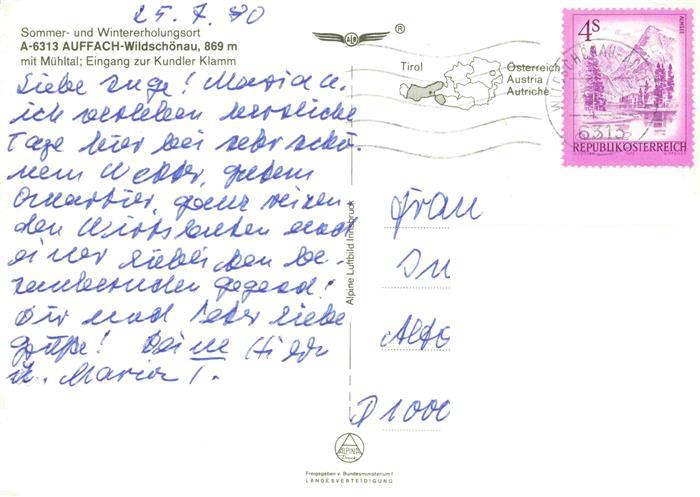 25.7.80
Sommer- und Wintererholungsort
A-6313 AUFFACH-Wildschönau, 869 m
mit Mühltal; Eingang zur Kundler Klamm
Liebe Inge! Maria u.
ich verleben herrliche
Tage hier bei sehr schö-
nem Wetter, gutem
Quartier, ganz reizen
den Wirtsleuten und
einer lieblichen be-
zaubernden Gegend!
Dir und Peter liebe
Grüße! Deine
u. Maria!
ALD
®
Tirol
Österreich
Austria
Autriche
4S
ALMSEE
REPUBLIK ÖSTERREICH
6313
Alpine Luftbild Innsbruck
Frau
In
Alto
D 1000
ALPINA
Druck
Freigegeben v. Bundesministerium f.
LANDESVERTEIDIGUNG